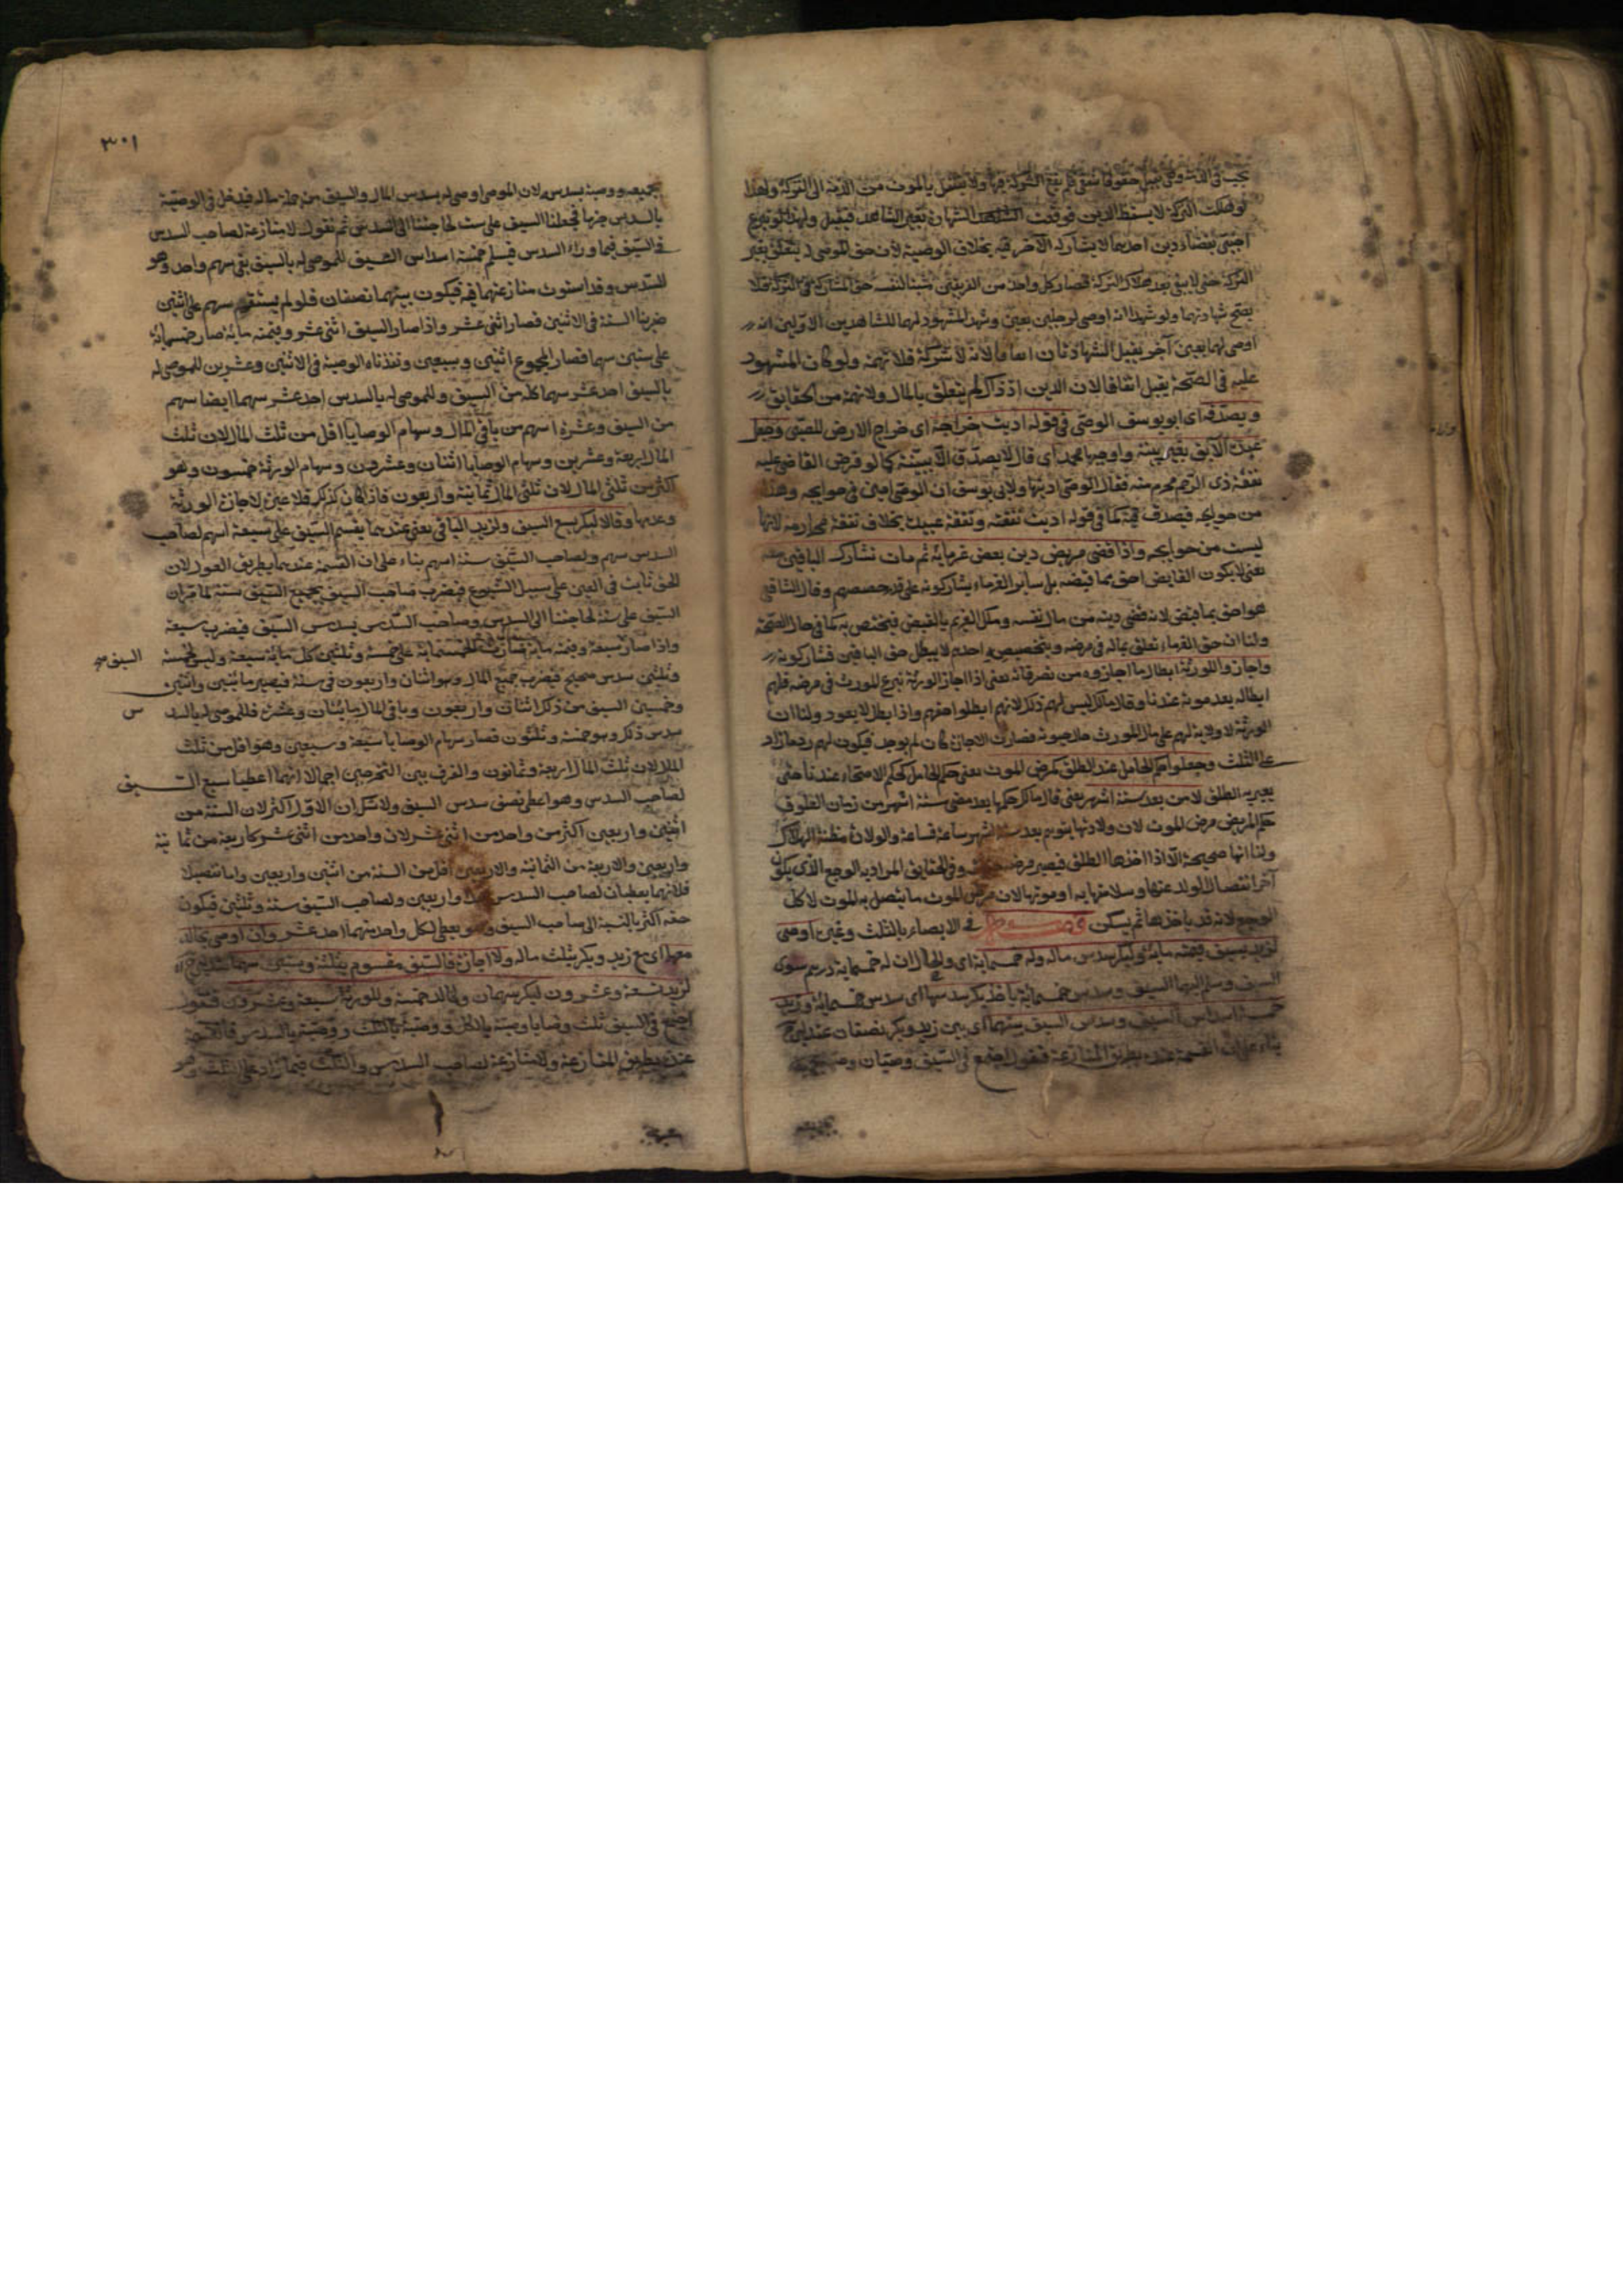 تجب في الذمة وهي قبل حقوقا شتى فلم تقع الشركة فيها ولا ينتقل بالموت من الذمة الى التركة ولهذا
لو هلكت التركة لا يسقط الدين فوقعت الشهادة بغير الشاهد فيقبل ولهذا لو تبرع
اجنبي بقضاء دين احدهما لا يشاركه الآخر فيه بخلاف الوصية لان حق الموصى له يتعلق بعين
التركة حتى لا يبقى بعد هلاك التركة فصار كل واحد من الفريقين مثبتا لنفسه حق المشاركة في التركة فلا
يصح شهادتهما ولو شهدا انه اوصى لرجلين بعين وشهد المشهود لهما للشاهدين الاولين انه
اوصى لهما بعين آخر يقبل الشهادتان اتفاقا لانه لا شركة فلا تهمة ولو كان المشهود
عليه في الصحة يقبل اتفاقا لان الدين اذ ذاك لم يتعلق بالمال ولا تهمة من الحقايق
ويصدق اى ابو يوسف الوصى في قوله اديت خراجه اى خراج الارض للصبى وجعل
عبده الآبق بغير بينة واوجبها محمد اى قال لا يصدق الا ببينة كما لو فرض القاضى عليه
نفقة ذى الرحم محرم منه فقال الوصى اديتها ولابى يوسف ان الوصى امين في حوايجه وهذا
من حوايجه فيصدق فيه كما في قوله اديت نفقته ونفقة عبيده بخلاف نفقة محارمه لانها
ليست من حوايجه واذا قضى مريض دين بعض غرمائه ثم مات نشارك الباقين معه
يعنى لا يكون القابض احق بما قبضه بل سائر الغرماء يشاركونه على قدر حصصهم وقال الشافعى
هو احق بما قبض لانه قضى دينه من مال نفسه وملك الغريم بالقبض فيختص به كما في حال الصحة
ولنا ان حق الغرماء تعلق بماله في مرضه وبتخصيص واحدهم لا يبطل حق الباقين فشاركونه
واجازوا للورثة ابطال ما اجازوه من تصرفاته يعنى اذا اجاز الورثة تبرع المورث في مرضه فلهم
ابطاله بعد موته عندنا وقال مالك ليس لهم ذلك لانهم ابطلوا حقهم واذا بطل لا يعود ولنا ان
الورثة لا ولاية لهم على مال المورث حال حيوته فصارت الاجازة كان لم يوجد فيكون لهم رد ما زاد
على الثلث وجعلوا حكم الحامل عند الطلق كمرض الموت يعنى حكم الحامل كحكم الاصحاء عندنا حتى
يعتريه الطلق لا من بعد ستة اشهر يعنى قال مالك حكمها بعد مضى ستة اشهر من زمان العلوق
حكم المريض مرض الموت لان ولادتها يتوهم بعد ستة اشهر ساعة فساعة والولادة مظنة الهلاك
ولنا انها صحيحة الا اذا اخذها الطلق فيصير مرض وفي الحقايق المراد به الوجع الذى يكون
آخر انفصال الولد عنها وسلامتها به او موتها لان مرض الموت ما يتصل به الموت لا كل
الوجع لانه قد ياخذها ثم يسكن فصل في الايصاء بالثلث وغيره اوصى
لزيد بسيف قيمته مائة ولبكر بسدس ماله وله خمسمائة اى والحال ان له خمسمائة درهم سوى
السيف وسلم اليهما السيف وسدس خمسمائة ياخذ بكر سدسها اى سدس خمسمائة وزيد
خمسة اسداس السيف وسدس السيف بينهما اى بين زيد وبكر نصفان عند ابى ح
بناء على ان القسمة عنده بطريق المنازعة فنقول اجتمع في السيف وصيتان وصية
بجميعه
٣٠١
بجميعه ووصية بسدس لان الموصى اوصى له بسدس المال والسيف من جملة ماله فيدخل في الوصية
بالسدس جزها فجعلنا السيف على ستة لحاجتنا الى السدس ثم نقول لا منازعة لصاحب السدس
في السيف فيما وراء السدس فيسلم خمسة اسداس السيف للموصى له بالسيف بقى سهم واحد وهو
السدس وقد استوت منازعتهما فيه فيكون بينهما نصفان فلو لم يستقم سهم على اثنين
ضربنا الستة في الاثنين فصار اثنى عشر واذا صار السيف اثنى عشر وقيمته مائة صار خمسمائة
على ستين سهما فصار المجموع اثنين وسبعين ونفذنا الوصية في الاثنين وعشرين للموصى له
بالسيف احد عشر سهما كله من السيف وللموصى له بالسدس احد عشر سهما ايضا سهم
من السيف وعشرة اسهم من باقى المال وسهام الوصايا اقل من ثلث المال لان ثلث
المال اربعة وعشرين وسهام الوصايا اثنان وعشرون وسهام الورثة خمسون وهو
اكثر من ثلثى المال لان ثلثى المال ثمانية واربعون فاذا كان كذلك فلا عبرة لاجازة الورثة
وعدمها وقالا لبكر سبع السيف ولزيد الباقى يعنى عندهما يقسم السيف على سبعة اسهم لصاحب
السدس سهم ولصاحب السيف ستة اسهم بناء على ان القسمة عندهما بطريق العول لان
الحق ثابت في العين على سبيل الشيوع فيضرب صاحب السيف بجميع السيف ستة لما مر ان
السيف على ستة لحاجتنا الى السدس وصاحب السدس بسدس السيف فيضرب سبعة
واذا صار سبعة وقيمته مائة صارت الخمسمائة على خمسة وثلثين كل مائة سبعة وليس لخمسة
السيف صح
وثلثين سدس صحيح فيضرب جميع المال وهو اثنان واربعون في ستة فيصير مائتين واثنين
وخمسين السيف من ذلك اثنان واربعون وباقى المال مايتان وعشرة فللموصى له بالسدس
سدس ذلك وهو خمسة وثلثون فصار سهام الوصايا سبعة وسبعين وهو اقل من ثلث
المال لان ثلث المال اربعة وثمانون والفرق بين التخرجين اجمالا انهما اعطيا سبع السيف
لصاحب السدس وهو اعطى نصف سدس السيف ولا شك ان الاول اكثر لان الستة من
اثنين واربعين اكثر من واحد من اثنى عشر لان واحد من اثنى عشر كاربعة من ثمانية
واربعين والاربعة من الثمانية والاربعين اقل من الستة من اثنين واربعين واما تفصيلا
فلانهما يعطيان لصاحب السدس واربعين ولصاحب السيف ستة وثلثين فيكون
حقه اكثر بالنسبة الى صاحب السيف وهو يعطى لكل واحد منهما احد عشر وان اوصى بخالد
معهما اى مع زيد وبكر بثلث ماله ولا اجازة فالسيف مقسوم بثلثة وستين سهما عند ابى ح
لزيد تسعة وعشرون لبكر سهمان ولخالد خمسة وللورثة سبعة وعشرون فنقول
اجتمع في السيف ثلث وصايا وصية بالكل ووصية بالثلث ووصية بالسدس فالقسمة
عنده بطريق المنازعة ولا منازعة لصاحب السدس والثلث فيما زاد على الثلث وهو